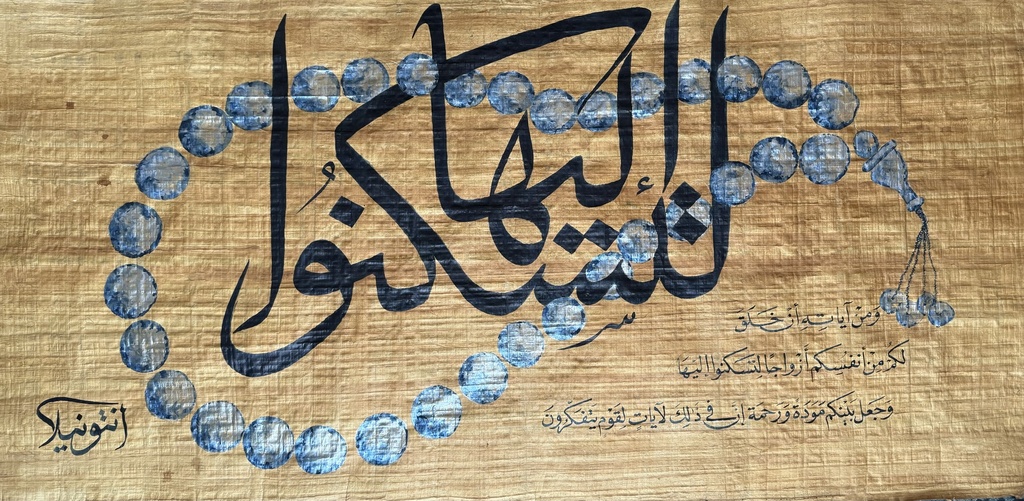 لتسكنوا إليها
وَمِنْ آيَاتِهِ أَنْ خَلَقَ
لَكُمْ مِنْ أَنْفُسِكُم أَزْوَاجًا لِتَسْكُنُوا إِلَيْهَا
وَجَعَلَ بَيْنَكُم مَوَدَّةً وَرَحْمَةً إِنَّ فِي ذَلِكَ لَآيَاتٍ لِقَوْمٍ يَتَفَكَّرُونَ
انتونيلا